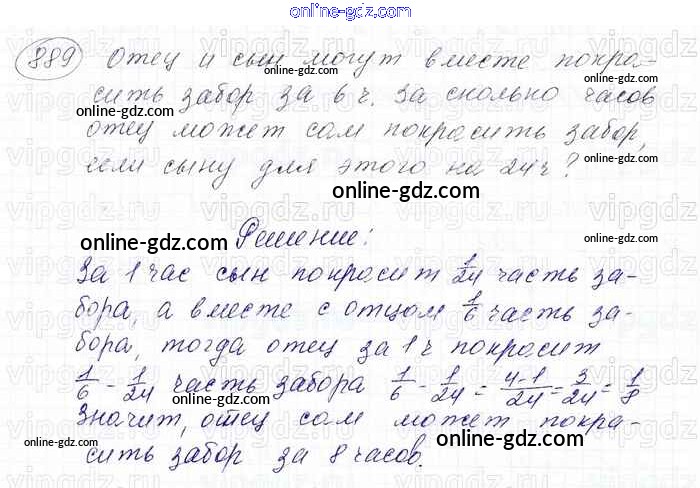 online-gdz.com
889 Отец и сын могут вместе покра-
сить забор за 6 ч. За сколько часов
online-gdz.com
отец может сам покрасить забор,
online-gdz.com
если сыну для этого на 24 ч?
online-gdz.com
online-gdz.com
Решение:
За 1 час сын покрасит 1/24 часть за-
бора, а вместе с отцом 1/6 часть за-
бора, тогда отец за 1 ч покрасит
online-gdz.com
1/6 - 1/24 часть забора 1/6 - 1/24 = 4-1/24 = 3/24 = 1/8
Значит, отец сам может покра-
online-gdz.com
online-gdz.com
сить забор за 8 часов.
online-gdz.com
vipgdz.ru